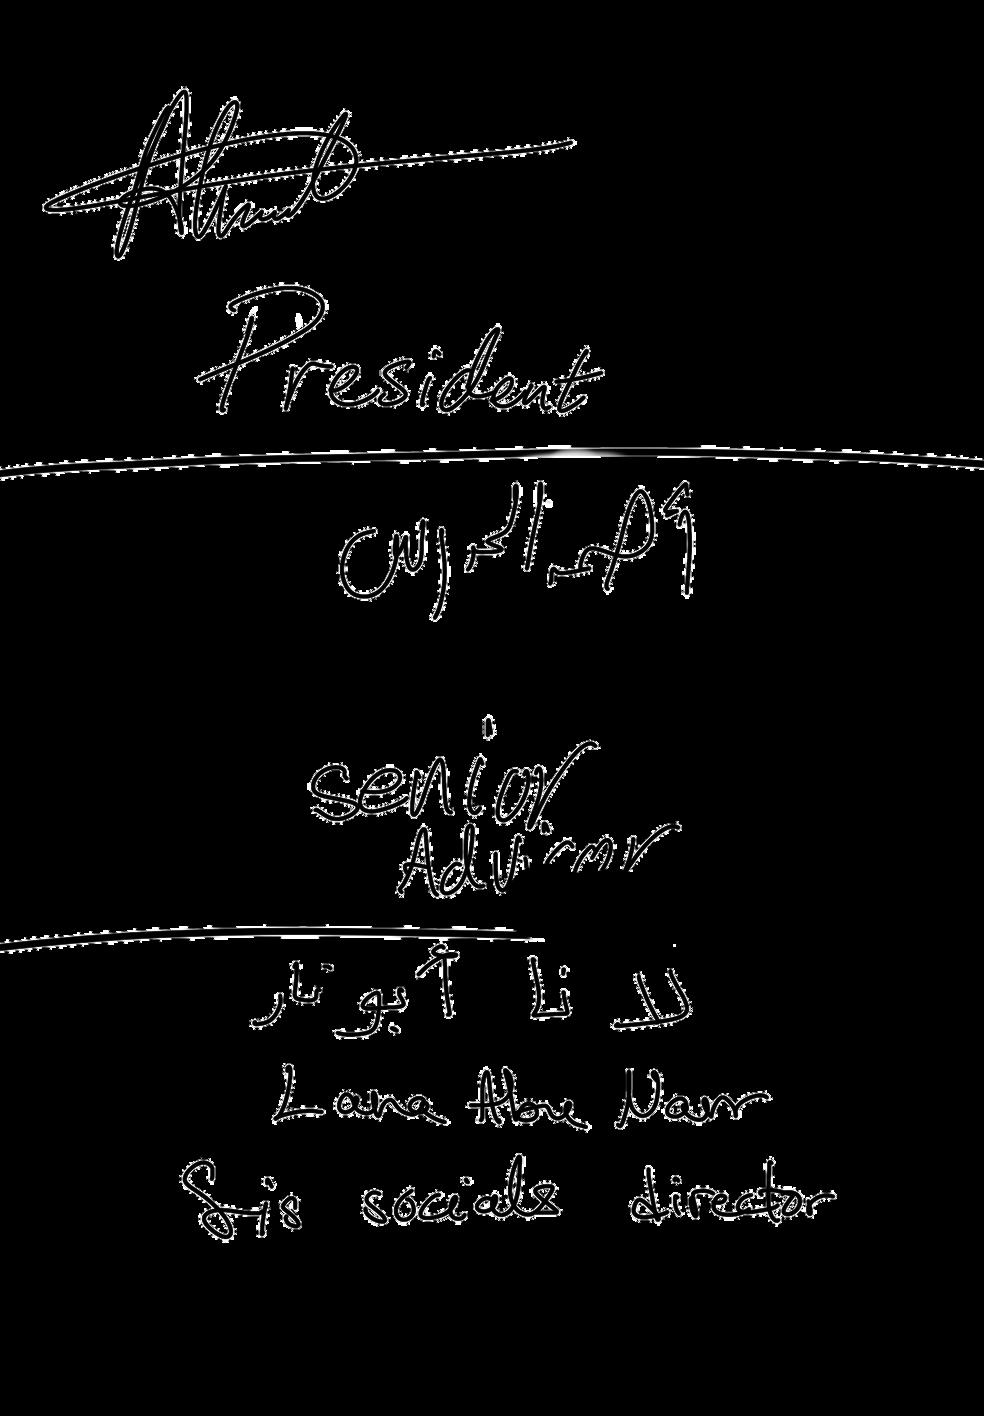 Ahmed
President
senior
Advisor
لانا أبو نار
Lana Abu Narr
Sis socials director